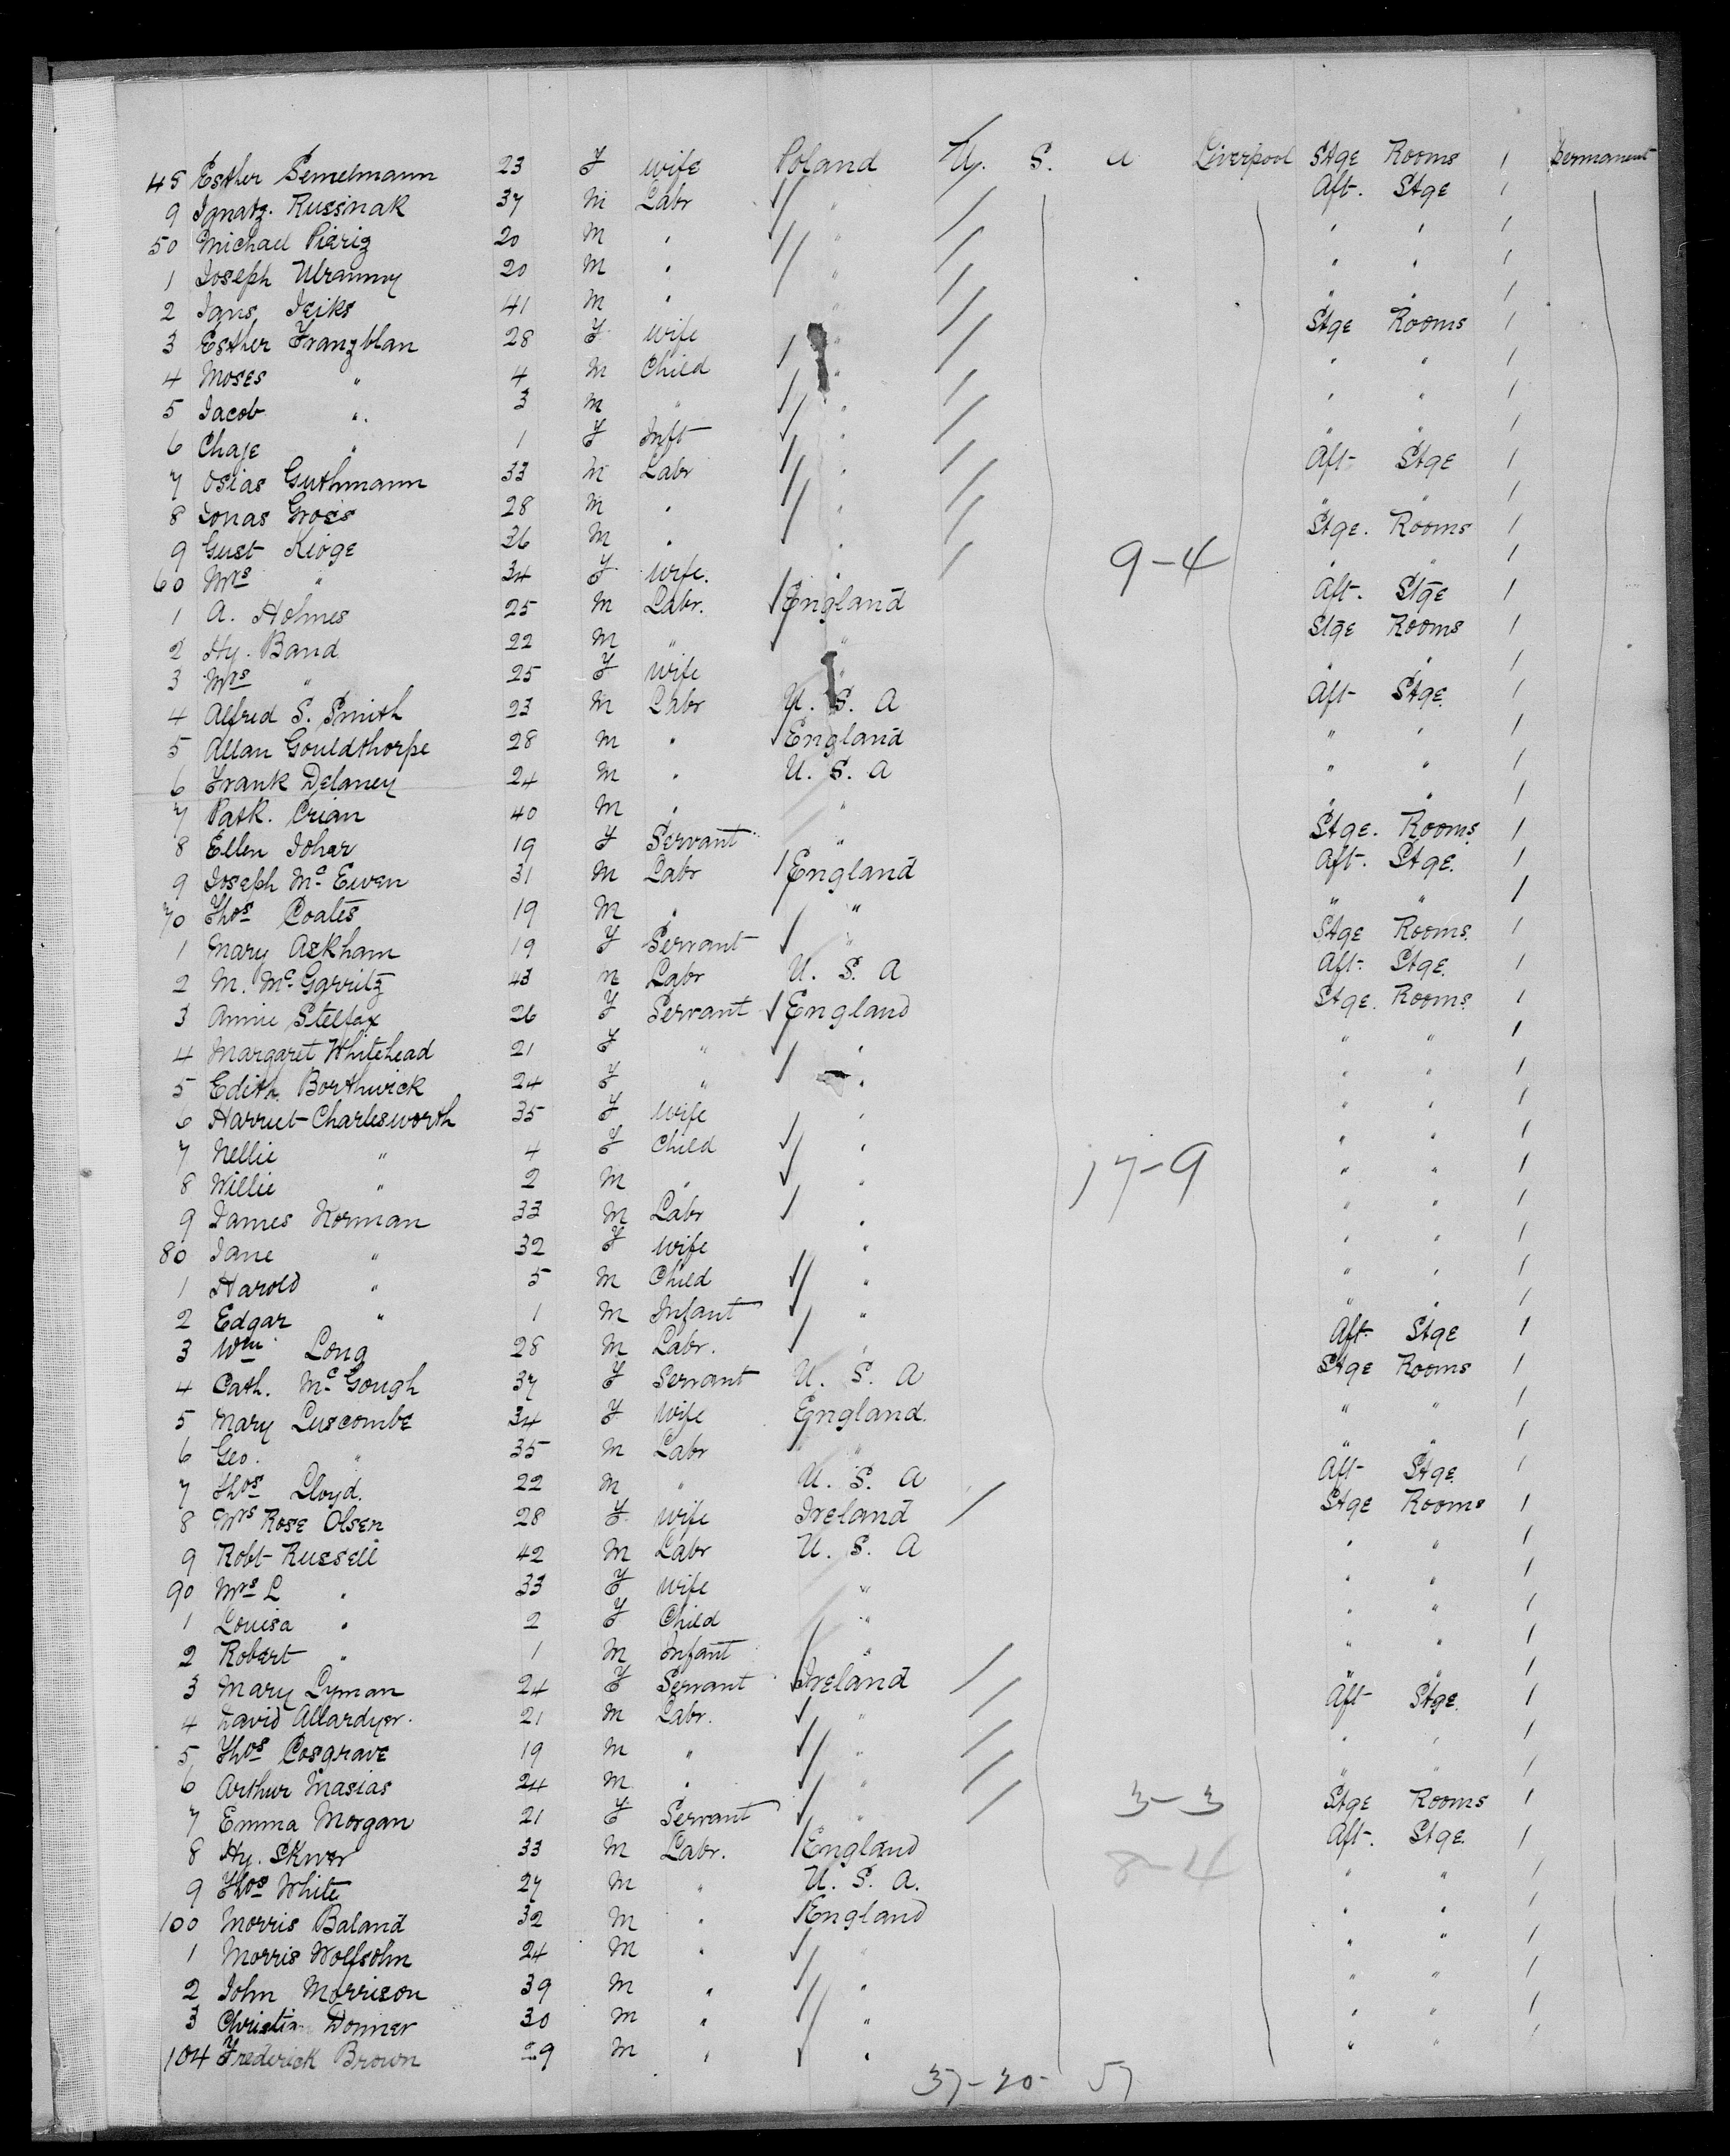 48 Esther Semelmann 23 F wife Poland U. S. A Liverpool Stge Rooms 1 Permanent
9 Ignatz. Russinak 37 M Labr " Aft. Stge 1
50 Michael 20 M " " " " 1
1 Joseph 20 M " " " " 1
2 41 M " " " " 1
3 Esther Franzblau 28 F wife " Stge Rooms 1
4 Moses " 4 M Child " " " 1
5 Jacob " 3 M " " " " 1
6 Chaje " 1 F Inft " " " 1
7 Osias Guthmann 33 M Labr " Aft Stge 1
8 Jonas Gross 28 M " " " " 1
9 Gust Kioge 36 M " " Stge. Rooms 1
60 Mrs " 34 F wife. " 9-4 " " 1
1 A. Holmes 25 M Labr. England Aft. Stge 1
2 Hy. Band 22 M " " Stge Rooms 1
3 Mrs " 25 F wife " " " 1
4 Alfred S. Smith 23 M Labr U. S. A Aft Stge. 1
5 Allan Gouldthorpe 28 M " England " " 1
6 Frank Delaney 24 M " U. S. A " " 1
7 Patk. Crian 40 M " " " " 1
8 Ellen Johar 19 F Servant " Stge. Rooms 1
9 Joseph McEwen 31 M Labr England Aft. Stge. 1
70 Thos Coates 19 M " " " " 1
1 Mary Askham 19 F Servant " Stge Rooms. 1
2 M. McGarritz 43 M Labr U. S. A Aft. Stge. 1
3 Annie Stelfax 26 F Servant England Stge. Rooms 1
4 Margaret Whitehead 21 F " " " " 1
5 Edith Borthwick 24 F " " " " 1
6 Harriet Charlesworth 35 F wife " " " 1
7 Nellie " 4 F Child " " " 1
8 Willie " 2 M " " 17-9 " " 1
9 James Norman 33 M Labr " " " 1
80 Jane " 32 F wife " " " 1
1 Harold " 5 M Child " " " 1
2 Edgar " 1 M Infant " " " 1
3 Wm Long 28 M Labr. " Aft. Stge 1
4 Cath. McGough 37 F Servant U. S. A Stge Rooms 1
5 Mary Luscombe 34 F wife England. " " 1
6 Geo. " 35 M Labr " " " 1
7 Thos Lloyd. 22 M " U. S. A Aft Stge. 1
8 Mrs Rose Olsen 28 F wife Ireland Stge Rooms 1
9 Robt Russell 42 M Labr U. S. A " " 1
90 Mrs L " 33 F wife " " " 1
1 Louisa " 2 F Child " " " 1
2 Robert " 1 M Infant " " " 1
3 Mary Lyman 24 F Servant Ireland " " 1
4 David Allardyer. 21 M Labr. " Aft Stge. 1
5 Thos Cosgrave 19 M " " " " 1
6 Arthur Masias 24 M " " " " 1
7 Emma Morgan 21 F Servant " 3-3 Stge Rooms 1
8 Hy. Skiver 33 M Labr. England 8-4 Aft. Stge. 1
9 Thos White 27 M " U. S. A. " " 1
100 Morris Baland 32 M " England " " 1
1 Morris Wolfsohn 24 M " " " " 1
2 John Morrison 39 M " " " " 1
3 Christian Donner 30 M " " " " 1
104 Frederick Brown 29 M " " " " 1
37-20- 57